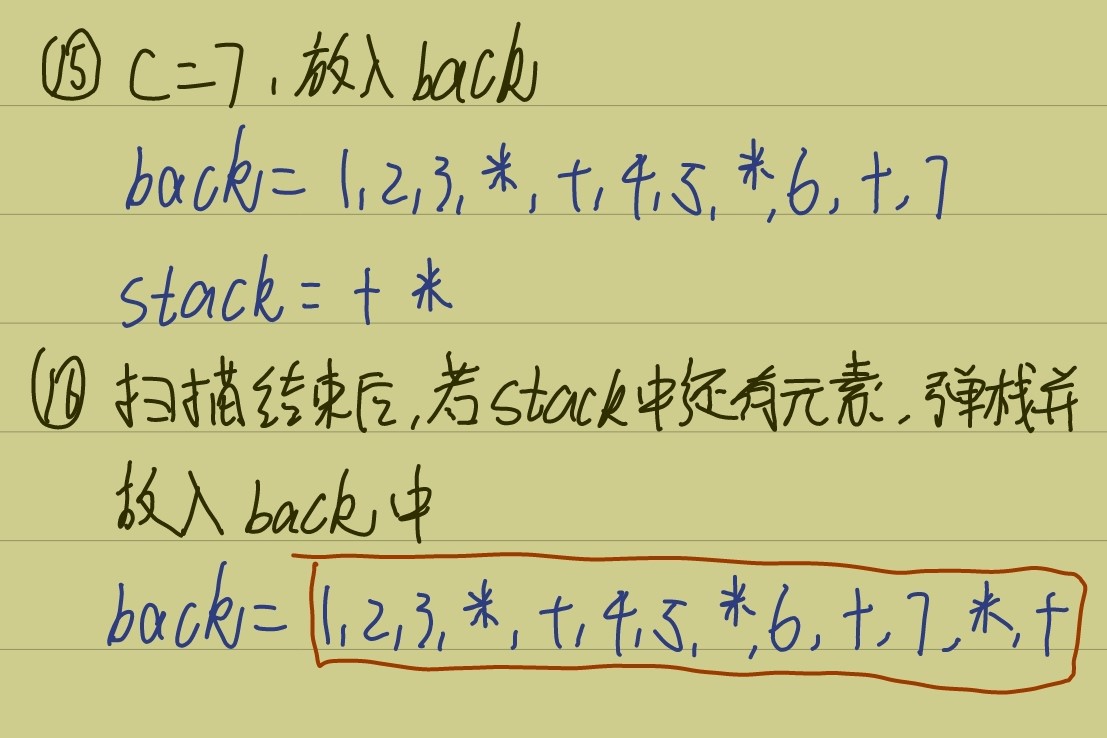 ⑮ C=7,放入back
back=1,2,3,*,+,4,5,*,6,+,7
stack=+ *
⑯ 扫描结束后,若stack中还有元素,弹栈并
放入back中
back=1,2,3,*,+,4,5,*,6,+,7,*,+